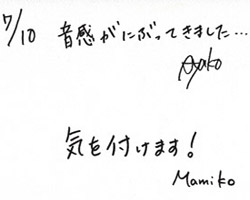 7/10 音感がにぶってきました…
Ayako
気を付けます！
Mamiko